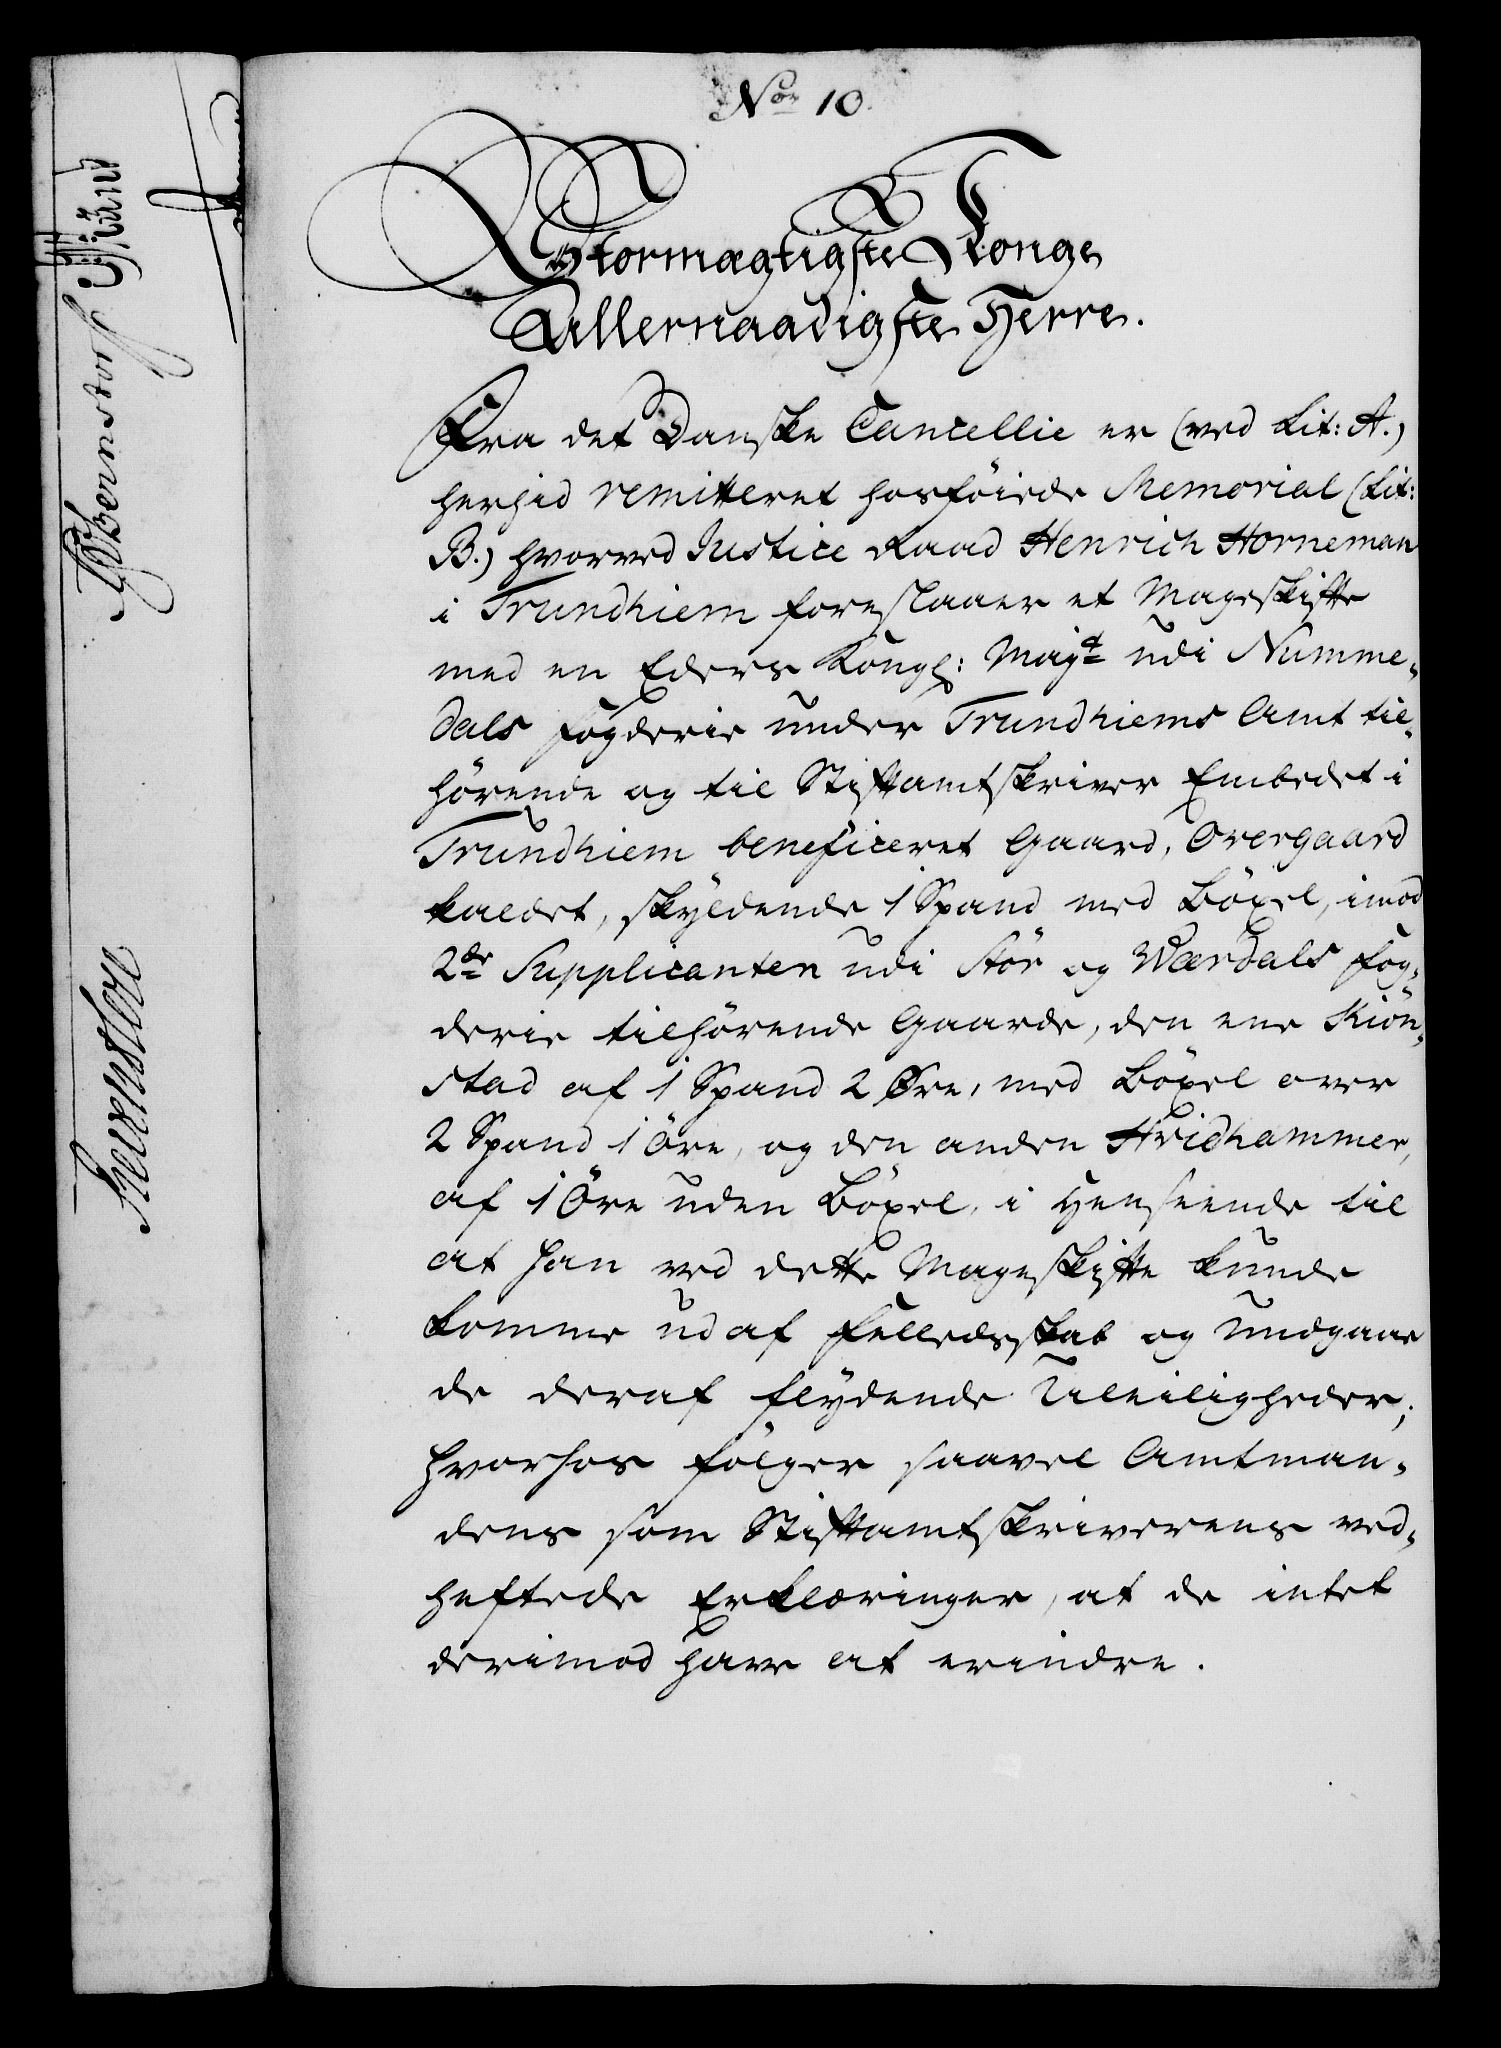 No. 10.
Stormægtigste Konge
Allernaadigste Herre.
Fra det Danske Cancellie er (ved Lit: A.)
herhid remitteret hosföiede Memorial (Lit:
B.) hvorved Justice Raad Henrich Horneman
i Trundhiem foreslaaer et Mageskifte
med en Eders Kongl: Mayt udi Numme-
dals Fogderie under Trundhiems Amt til-
hörende og til Stiftamtskriver Embedet i
Trundhiem beneficeret Gaard, Overgaard
kaldet, skyldende 1 Spand med Böxel, imod
2de Supplicanten udi Stör og Wærdals Fog-
derie tilhörende Gaarde, den ene Kiön-
stad af 1 Spand 2 Øre, med Böxel over
2 Spand 1 Öre, og den anden Hridhammer,
af 1 Öre uden Böxel, i Henseende til
at han ved dette Mageskifte kunde
komme ud af Felledsskab og undgaae
de deraf flydende Uleiligheder;
hvorhos fölger saavel Amtman-
dens som Stiftamtskriverens ved-
heftede Erklæringer, at de intet
derimod have at erindre.
Bernstorf